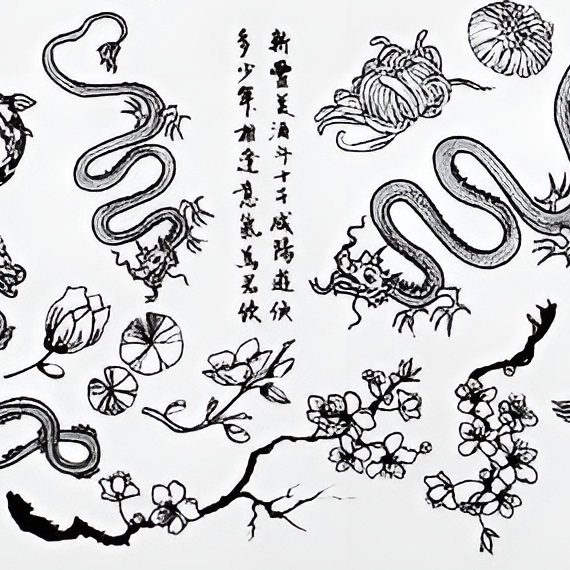 新豐美酒斗十千咸陽遊俠
多少年相逢意氣為君飲